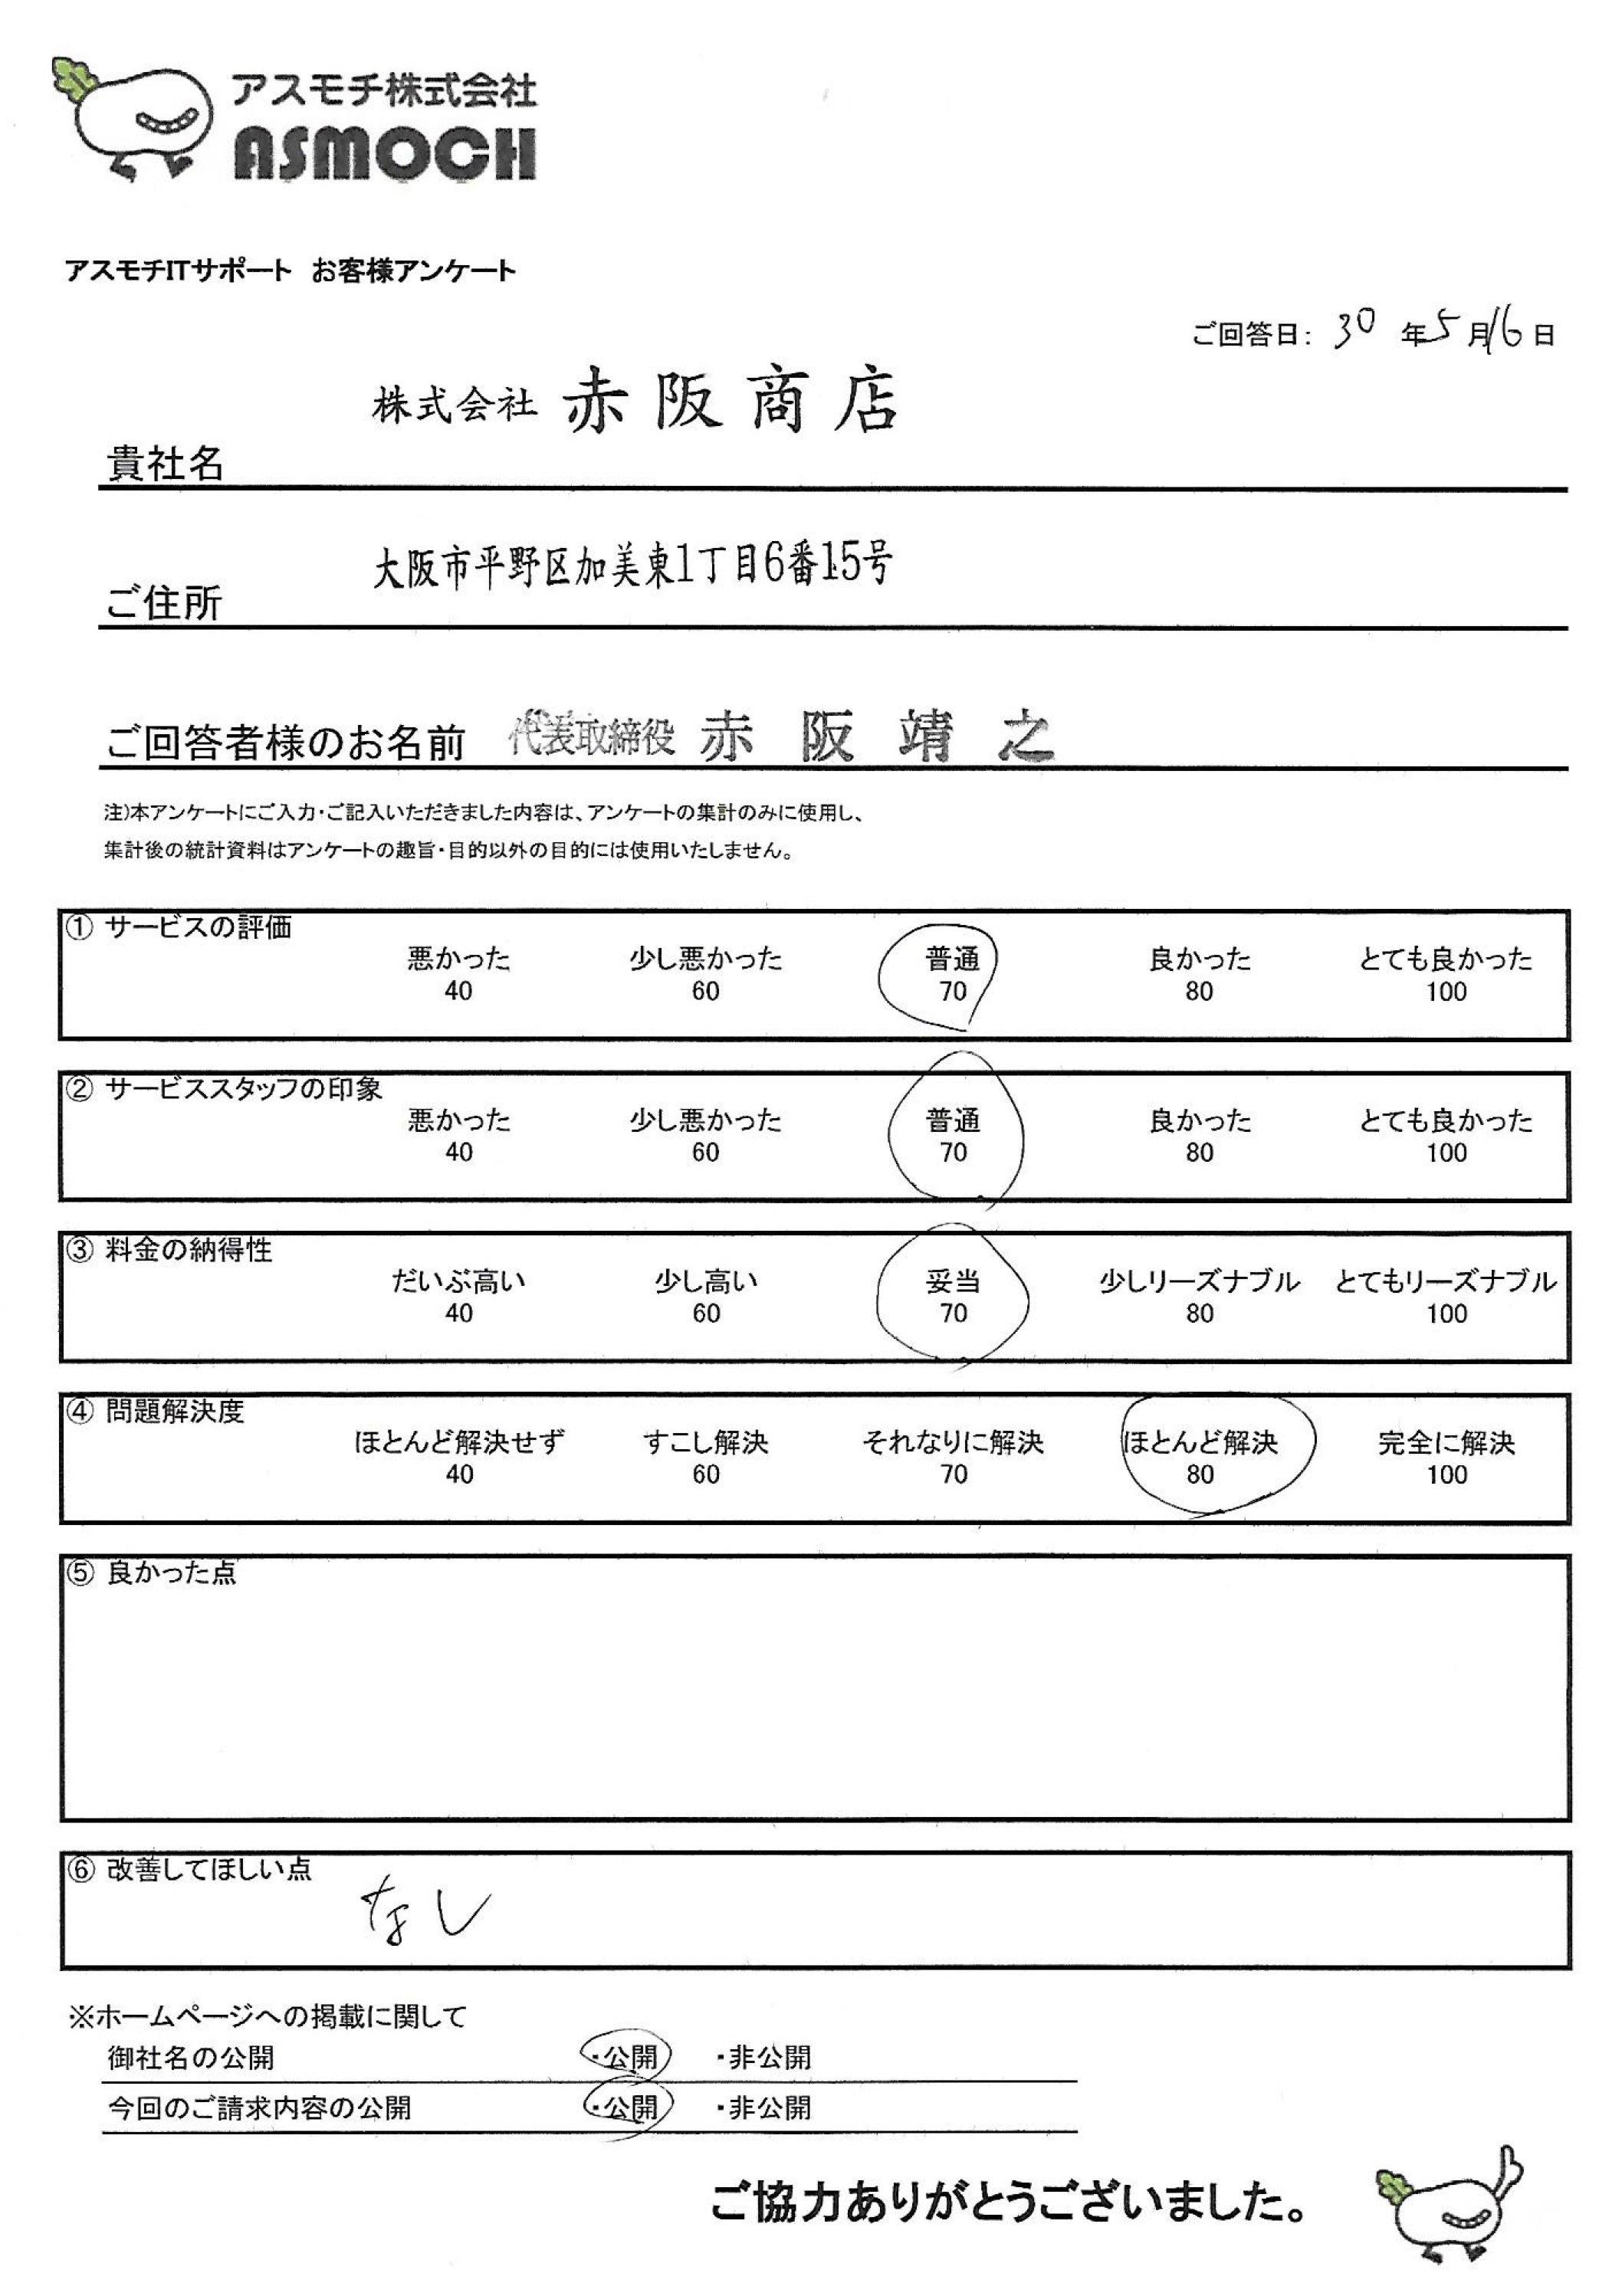 アスモチ株式会社
ASMOCH
アスモチITサポート お客様アンケート
ご回答日: 30 年5月16日
株式会社 赤阪商店
貴社名
大阪市平野区加美東1丁目6番15号
ご住所
ご回答者様のお名前 代表取締役 赤阪靖之
注)本アンケートにご入力・ご記入いただきました内容は、アンケートの集計のみに使用し、
集計後の統計資料はアンケートの趣旨・目的以外の目的には使用いたしません。
① サービスの評価
悪かった 少し悪かった 普通 良かった とても良かった
40 60 70 80 100
② サービススタッフの印象
悪かった 少し悪かった 普通 良かった とても良かった
40 60 70 80 100
③ 料金の納得性
だいぶ高い 少し高い 妥当 少しリーズナブル とてもリーズナブル
40 60 70 80 100
④ 問題解決度
ほとんど解決せず すこし解決 それなりに解決 ほとんど解決 完全に解決
40 60 70 80 100
⑤ 良かった点
⑥ 改善してほしい点
なし
※ホームページへの掲載に関して
御社名の公開 ・公開 ・非公開
今回のご請求内容の公開 ・公開 ・非公開
ご協力ありがとうございました。